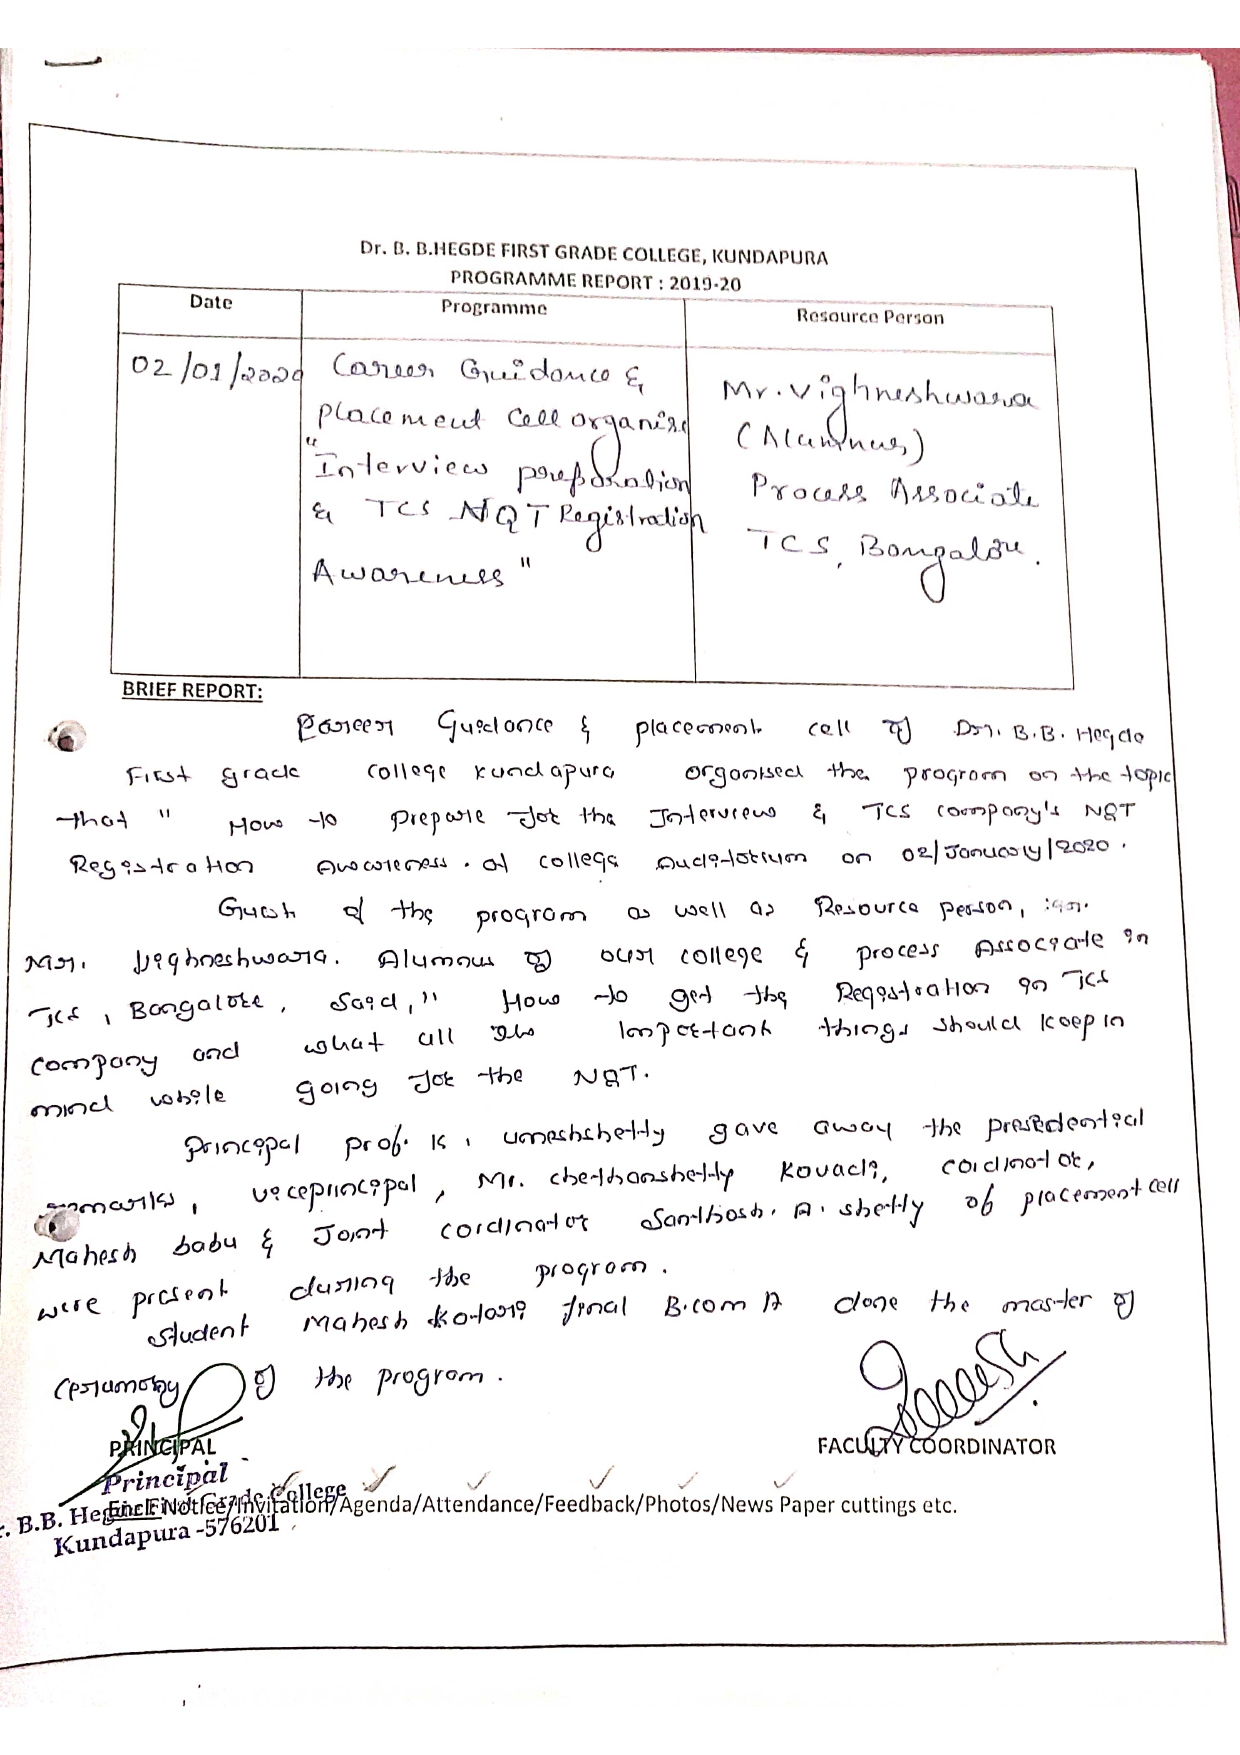 Dr. B. B.HEGDE FIRST GRADE COLLEGE, KUNDAPURA
PROGRAMME REPORT : 2019-20
Date
Programme
Resource Person
02/01/2020
Career Guidance &
placement cell organise
"Interview preparation
& TCS NQT Registration
Awareness"
Mr. Vighneshwara
(Alumnus)
Process Associate
TCS, Bangalore.
BRIEF REPORT:
Career Guidance & placement cell of Dr. B.B. Hegde
First grade college kundapura organised the program on the topic
that " How to prepare for the Interview & TCS company's NQT
Registration Awareness. at college Auditorium on 02/January/2020.
Guest of the program as well as Resource person,
Mr. Vighneshwara. Alumnus of our college & process Associate in
TCS, Bangalore, said," How to get the Registration in TCS
company and what all the important things should keep in
mind while going for the NQT.
Principal prof. K. umeshshetty gave away the presidential
remarks, viceprincipal, Mr. chethanshetty Kovadi, cordinator,
Mahesh babu & Joint cordinator Santhosh. A. shetty of placement cell
were present during the program.
student Mahesh final B.com A done the master of
of the program.
PRINCIPAL
FACULTY COORDINATOR
Principal
Encl: Notice/Invitation/Agenda/Attendance/Feedback/Photos/News Paper cuttings etc.
B.B. Hegde First Grade College
Kundapura -576201